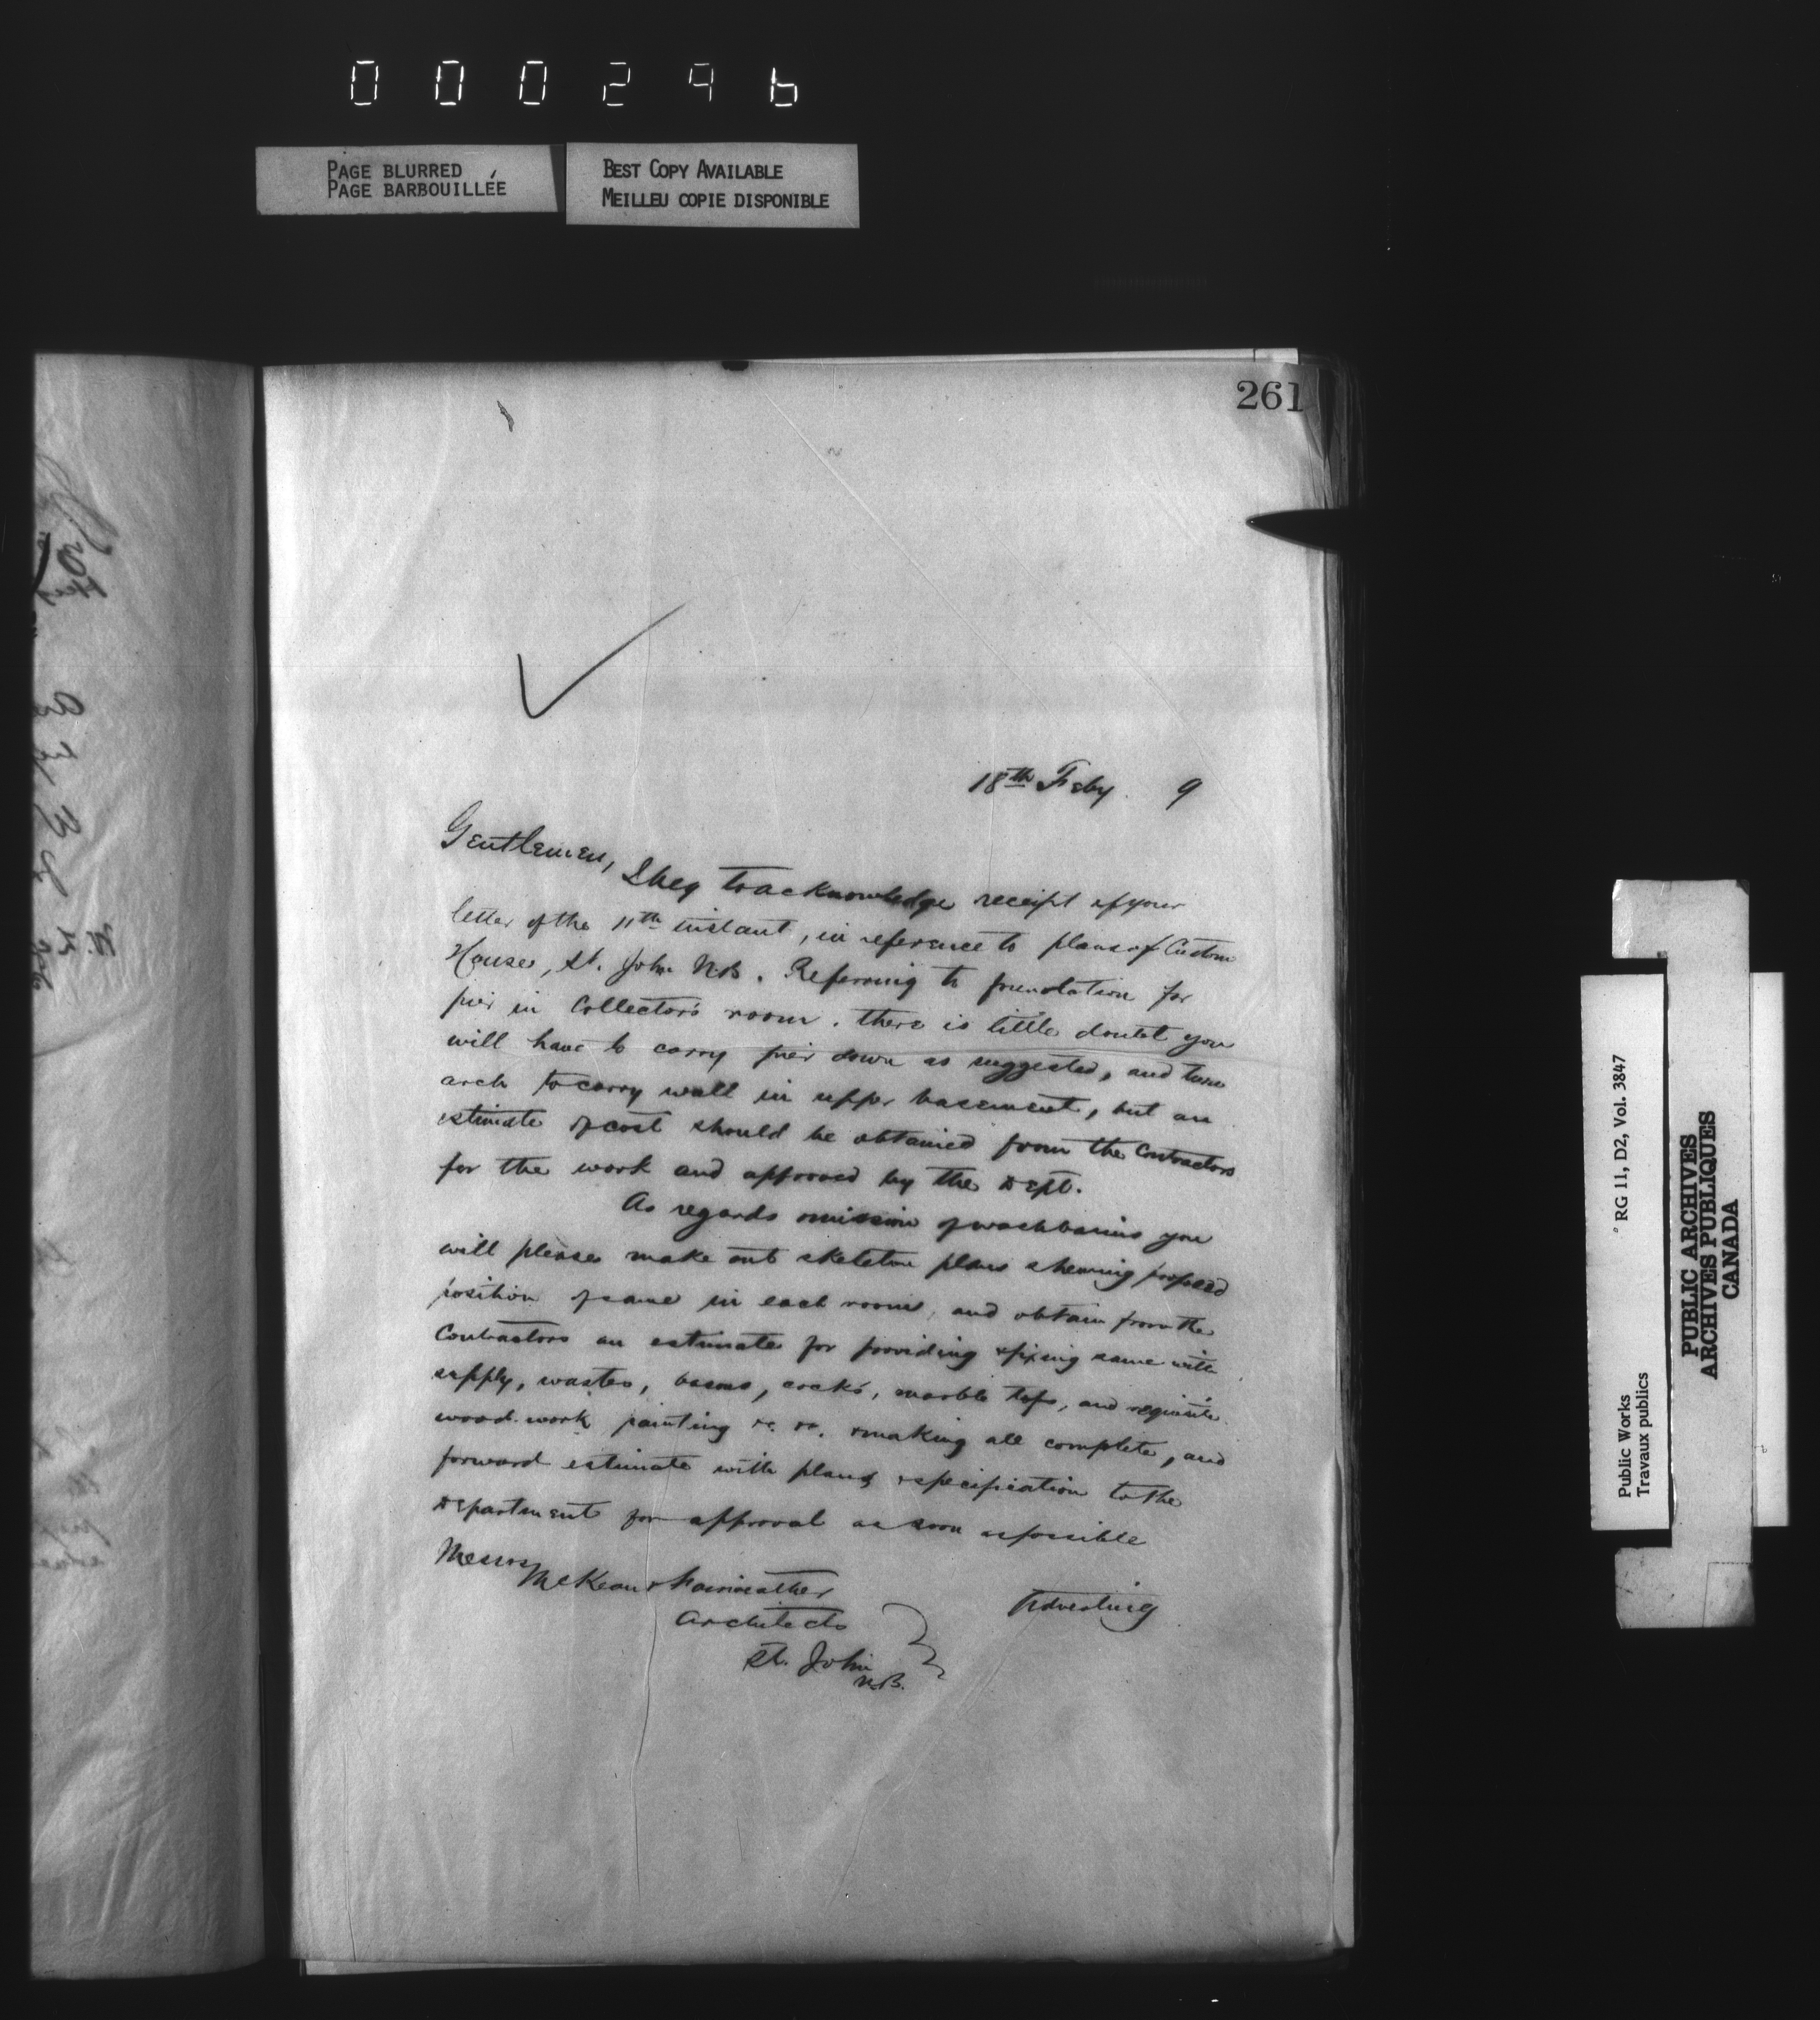 000296
PAGE BLURRED
PAGE BARBOUILLÉE
BEST COPY AVAILABLE
MEILLEU COPIE DISPONIBLE
261
18th Feby. 9
Gentlemen,
I beg to acknowledge receipt of your
letter of the 11th instant, in reference to plans of Custom
House, St. John N.B. Referring to foundation for
pier in Collector's room. there is little doubt you
will have to carry pier down as suggested, and turn
arch to carry wall in upper basement, but an
estimate of cost should be obtained from the Contractors
for the work and approved by the Dept.
As regards omission of washbasins you
will please make out skeleton plans shewing proposed
position of same in each room, and obtain from the
Contractors an estimate for providing & fixing same with
supply, wastes, basins, cocks, marble tops, and requisite
wood-work painting &c. &c. & making all complete, and
forward estimate with plans & specification to the
Department for approval as soon as possible
Messrs
McKean & Fairweather
Architects
St. John
N.B.
RG 11, D2, Vol. 3847
Public Works
Travaux publics
PUBLIC ARCHIVES
ARCHIVES PUBLIQUES
CANADA